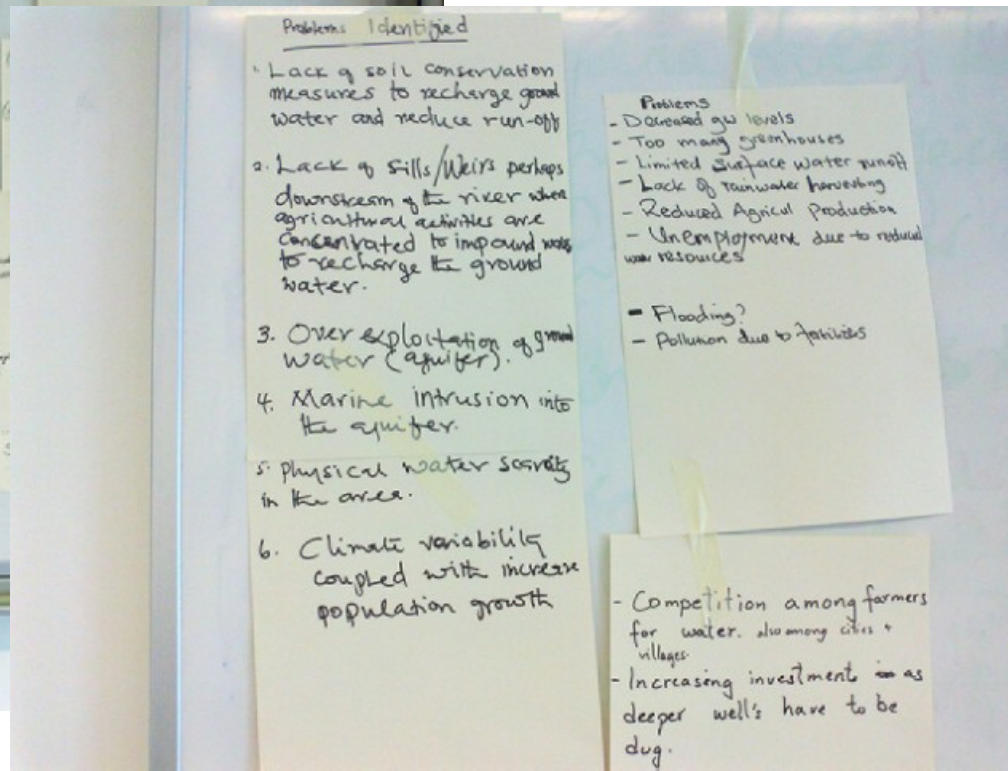 Problems Identified
1. Lack of soil conservation
measures to recharge ground
water and reduce run-off
2. Lack of Sills/Weirs perhaps
downstream of the river where
agricultural activities are
concentrated to impound water
to recharge the ground
water.
3. Over exploitation of ground
water (aquifer).
4. Marine intrusion into
the aquifer.
5. Physical water scarcity
in the area.
6. Climate variability
coupled with increase
population growth
Problems
- Decreased gw levels
- Too many greenhouses
- Limited surface water runoff
- Lack of rainwater harvesting
- Reduced Agricul Production
- Unemployment due to reduced
water resources
- Flooding?
- Pollution due to
- Competition among farmers
for water. also among cities +
villages.
- Increasing investment as
deeper well's have to be
dug.